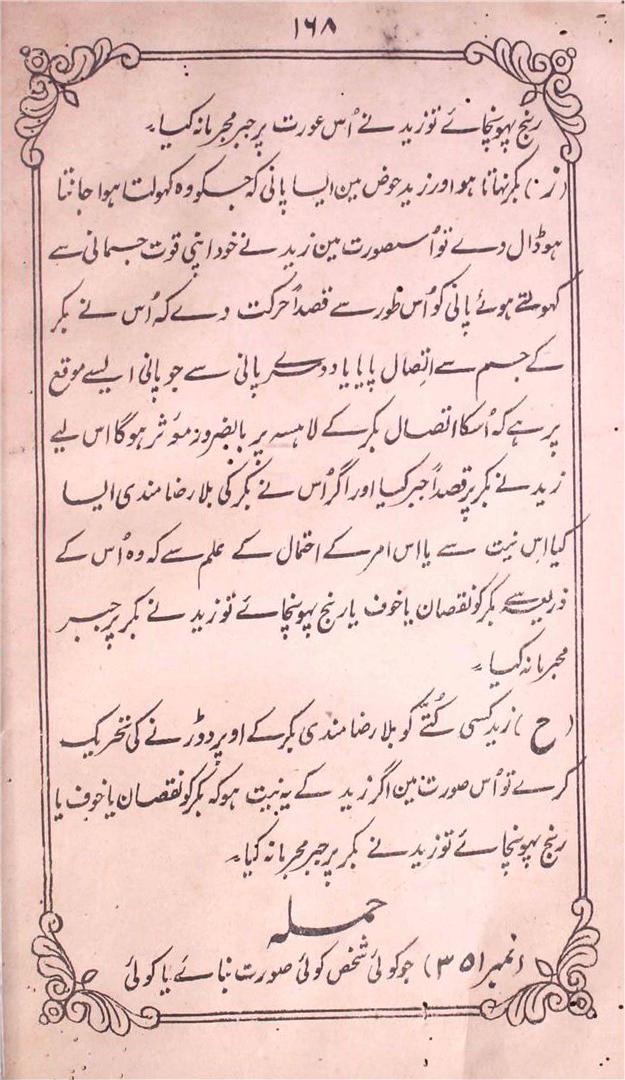 ۱۶۸
رنج پہونچائے تو زید نے اُس عورت پر جبر مجرمانہ کیا۔
(ز) بکر نہاتا ہو اور زید حوض مین ایسا پانی کہ جسکو وہ کہولتا ہوا جانتا
ہو ڈال دے تو اُسصورت مین زید نے خود اپنی قوت جسمانی سے
کہولتے ہوئے پانی کو اُس طور سے قصداً حرکت دے کہ اُس نے بکر
کے جسم سے اِتصال پایا یا دوسرے پانی سے جو پانی ایسے موقع
پر ہے کہ اُسکا اتصال بکر کے لامسہ پر بالضرور موٴثر ہوگا اس لیے
زید نے بکر پر قصداً جبر کیا اور اگر اُس نے بکر کی بلا رضامندی ایسا
کیا اِس نیت سے یا اس امر کے احتمال کے علم سے کہ وہ اُس کے
ذریعہ سے بکر کو نقصان یا خوف یا رنج پہونچائے تو زید نے بکر پر جبر
مجرمانہ کیا۔
(ح) زید کسی کُتّے کو بلا رضامندی بکر کے اوپر دوڑنے کی تحریک
کرے تو اُس صورت مین اگر زید کے یہ نیت ہو کہ بکر کو نقصان یا خوف یا
رنج پہونچائے تو زید نے بکر پر جبر مجرمانہ کیا۔
حملہ
(نمبر ۳۵۱) جو کوئی شخص کوئی صورت بنائے یا کوئی